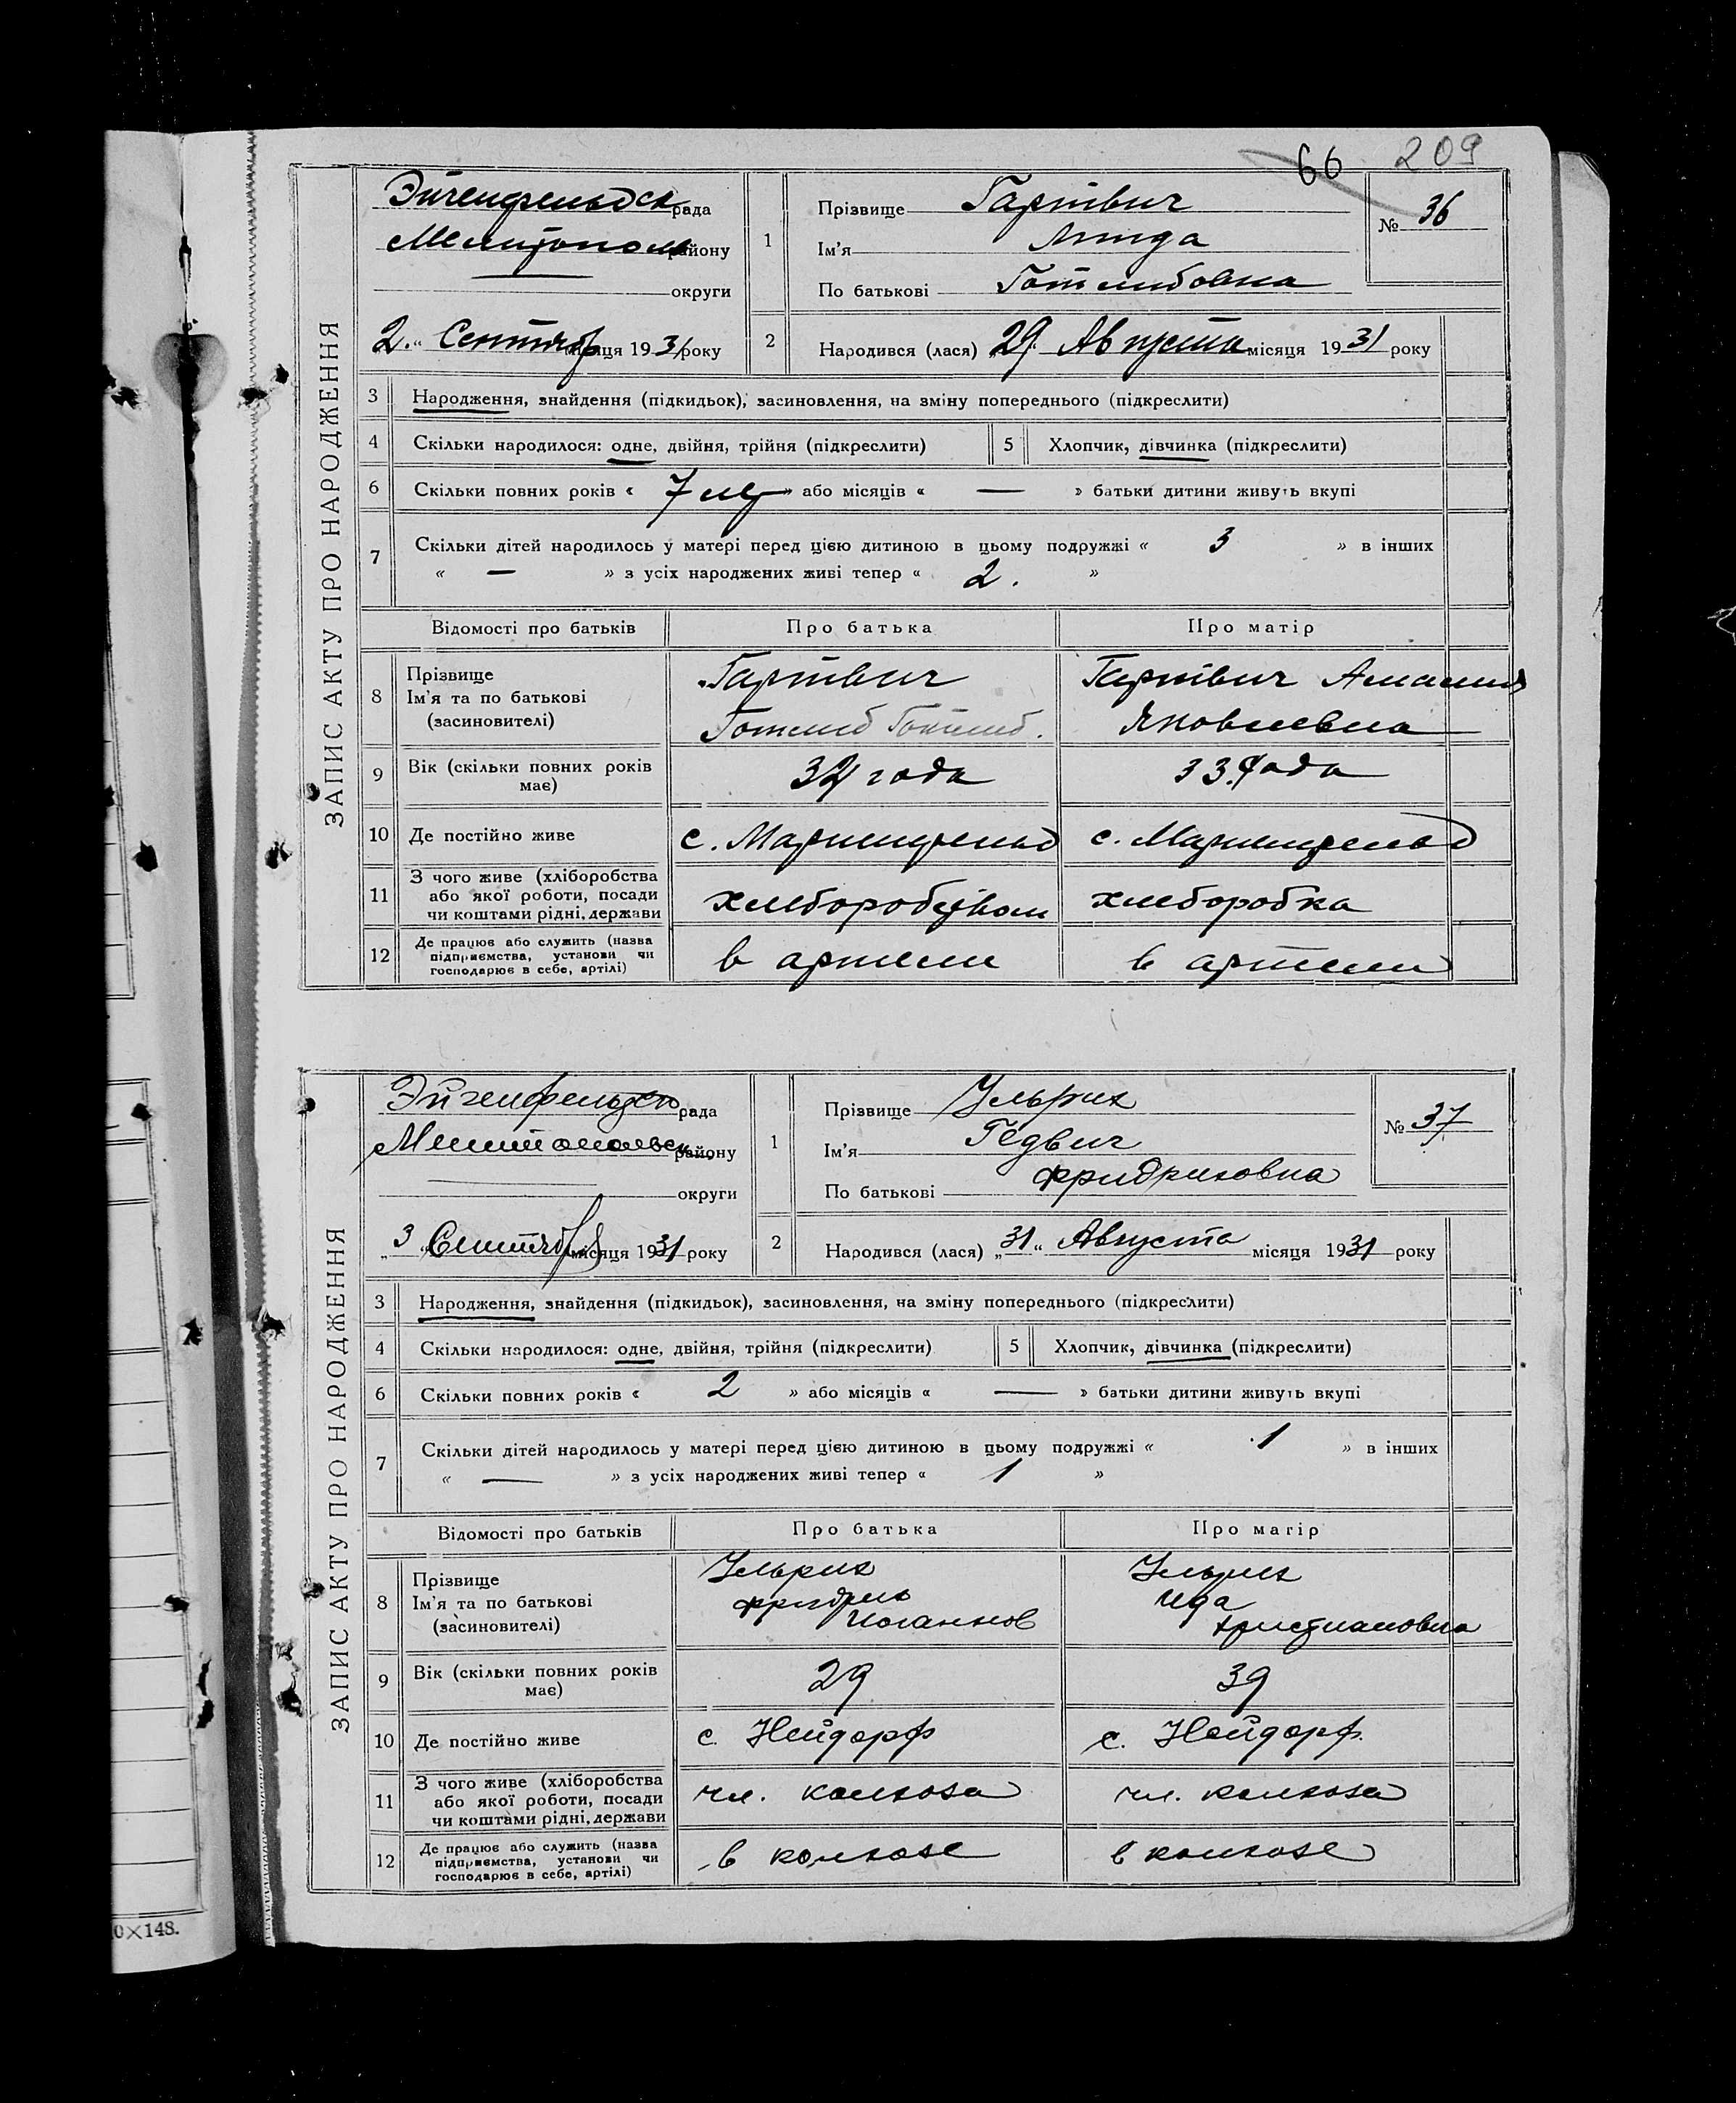 66 209
ЗАПИС АКТУ ПРО НАРОДЖЕННЯ
Эйгенфельдск рада
Мелитополь району
округи
2 „ Сентябр місяця 1931 року
1
Прізвище Гартвич
Ім'я Линда
По батькові Готлибовна
№ 36
2
Народився (лася) „29 Августа місяця 1931 року
3 Народження, знайдення (підкидьок), засиновлення, на зміну попереднього (підкреслити)
4 Скільки народилося: одне, двійня, трійня (підкреслити) 5 Хлопчик, дівчинка (підкреслити)
6 Скільки повних років « 7 » або місяців « — » батьки дитини живуть вкупі
7 Скільки дітей народилось у матері перед цією дитиною в цьому подружжі « 3 » в інших
« — » з усіх народжених живі тепер « 2. »
Відомості про батьків Про батька Про матір
8 Прізвище
Ім'я та по батькові
(засиновителі)
Гартвич
Готлиб Готлиб.
Гартвич Амалия
Яковлевна
9 Вік (скільки повних років
має)
года 33 года
10 Де постійно живе с. Мариенфельд с. Мариенфельд
11 З чого живе (хліборобства
або якої роботи, посади
чи коштами рідні, держави
хлеборобством хлеборобка
12 Де працює або служить (назва
підприємства, установи чи
господарює в себе, артілі)
в артели в артели
ЗАПИС АКТУ ПРО НАРОДЖЕННЯ
Эйгенфельдск рада
Мелитопольск району
округи
„3 „ Сентября місяця 1931 року
1
Прізвище Ульрих
Ім'я Гедвиг
По батькові Фридриховна
№ 37
2
Народився (лася) „31“ Августа місяця 1931 року
3 Народження, знайдення (підкидьок), засиновлення, на зміну попереднього (підкреслити)
4 Скільки народилося: одне, двійня, трійня (підкреслити) 5 Хлопчик, дівчинка (підкреслити)
6 Скільки повних років « 2 » або місяців « — » батьки дитини живуть вкупі
7 Скільки дітей народилось у матері перед цією дитиною в цьому подружжі « 1 » в інших
« — » з усіх народжених живі тепер « 1 »
Відомості про батьків Про батька Про матір
8 Прізвище
Ім'я та по батькові
(засиновителі)
Ульрих
Фридрих
Иоганнов
Ульрих
Ида
Христиановна
9 Вік (скільки повних років
має)
29 39
10 Де постійно живе с. Нейдорф с. Нейдорф.
11 З чого живе (хліборобства
або якої роботи, посади
чи коштами рідні, держави
чл. колхоза чл. колхоза
12 Де працює або служить (назва
підприємства, установи чи
господарює в себе, артілі)
в колхозе в колхозе
0×148.